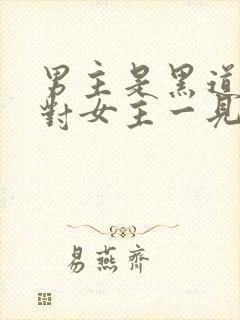 男主是黑道
對女主一見
易燕齊